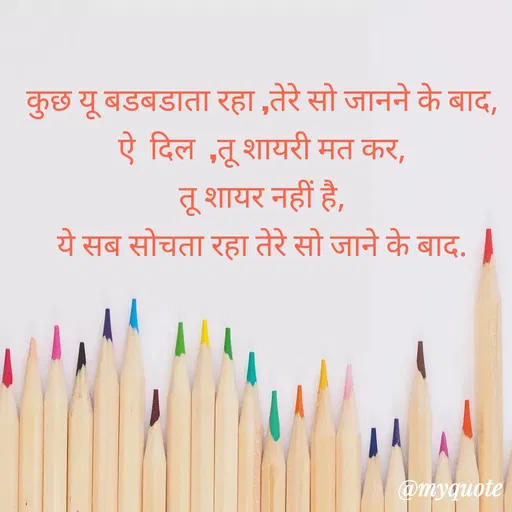 कुछ यू बडबडाता रहा ,तेरे सो जानने के बाद,
ऐ दिल ,तू शायरी मत कर,
तू शायर नहीं है,
ये सब सोचता रहा तेरे सो जाने के बाद.
@myquote